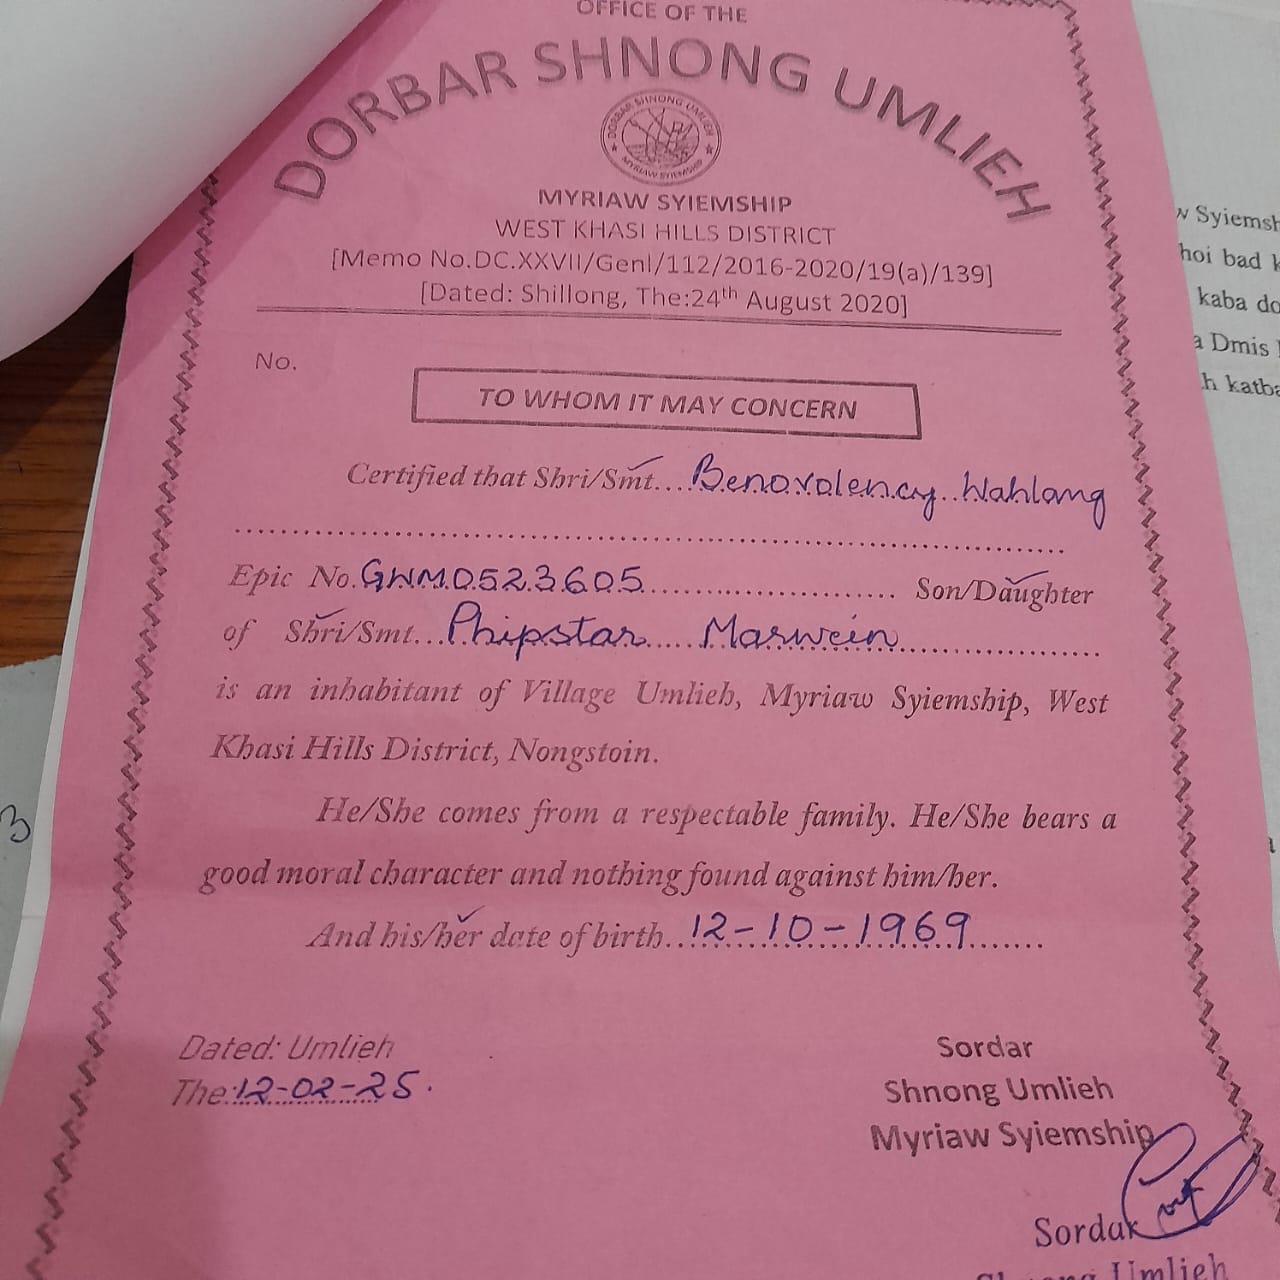 OFFICE OF THE
DORBAR SHNONG UMLIEH
DORBAR SHNONG UMLIEH
MYRIAW SYIEMSHIP
MYRIAW SYIEMSHIP
WEST KHASI HILLS DISTRICT
[Memo No.DC.XXVII/Genl/112/2016-2020/19(a)/139]
[Dated: Shillong, The:24th August 2020]
No.
TO WHOM IT MAY CONCERN
Certified that Shri/Smt...Benovolency Wahlang
Epic No.GWM0523605.................... Son/Daughter
of Shri/Smt...Phipstar.....Marwein....................
is an inhabitant of Village Umlieh, Myriaw Syiemship, West
Khasi Hills District, Nongstoin.
He/She comes from a respectable family. He/She bears a
good moral character and nothing found against him/her.
And his/her date of birth...12-10-1969.......
Dated: Umlieh
The:12-02-25.
Sordar
Shnong Umlieh
Myriaw Syiemship
Sordar
Umlieh
3
hoi bad
kaba
Dmis